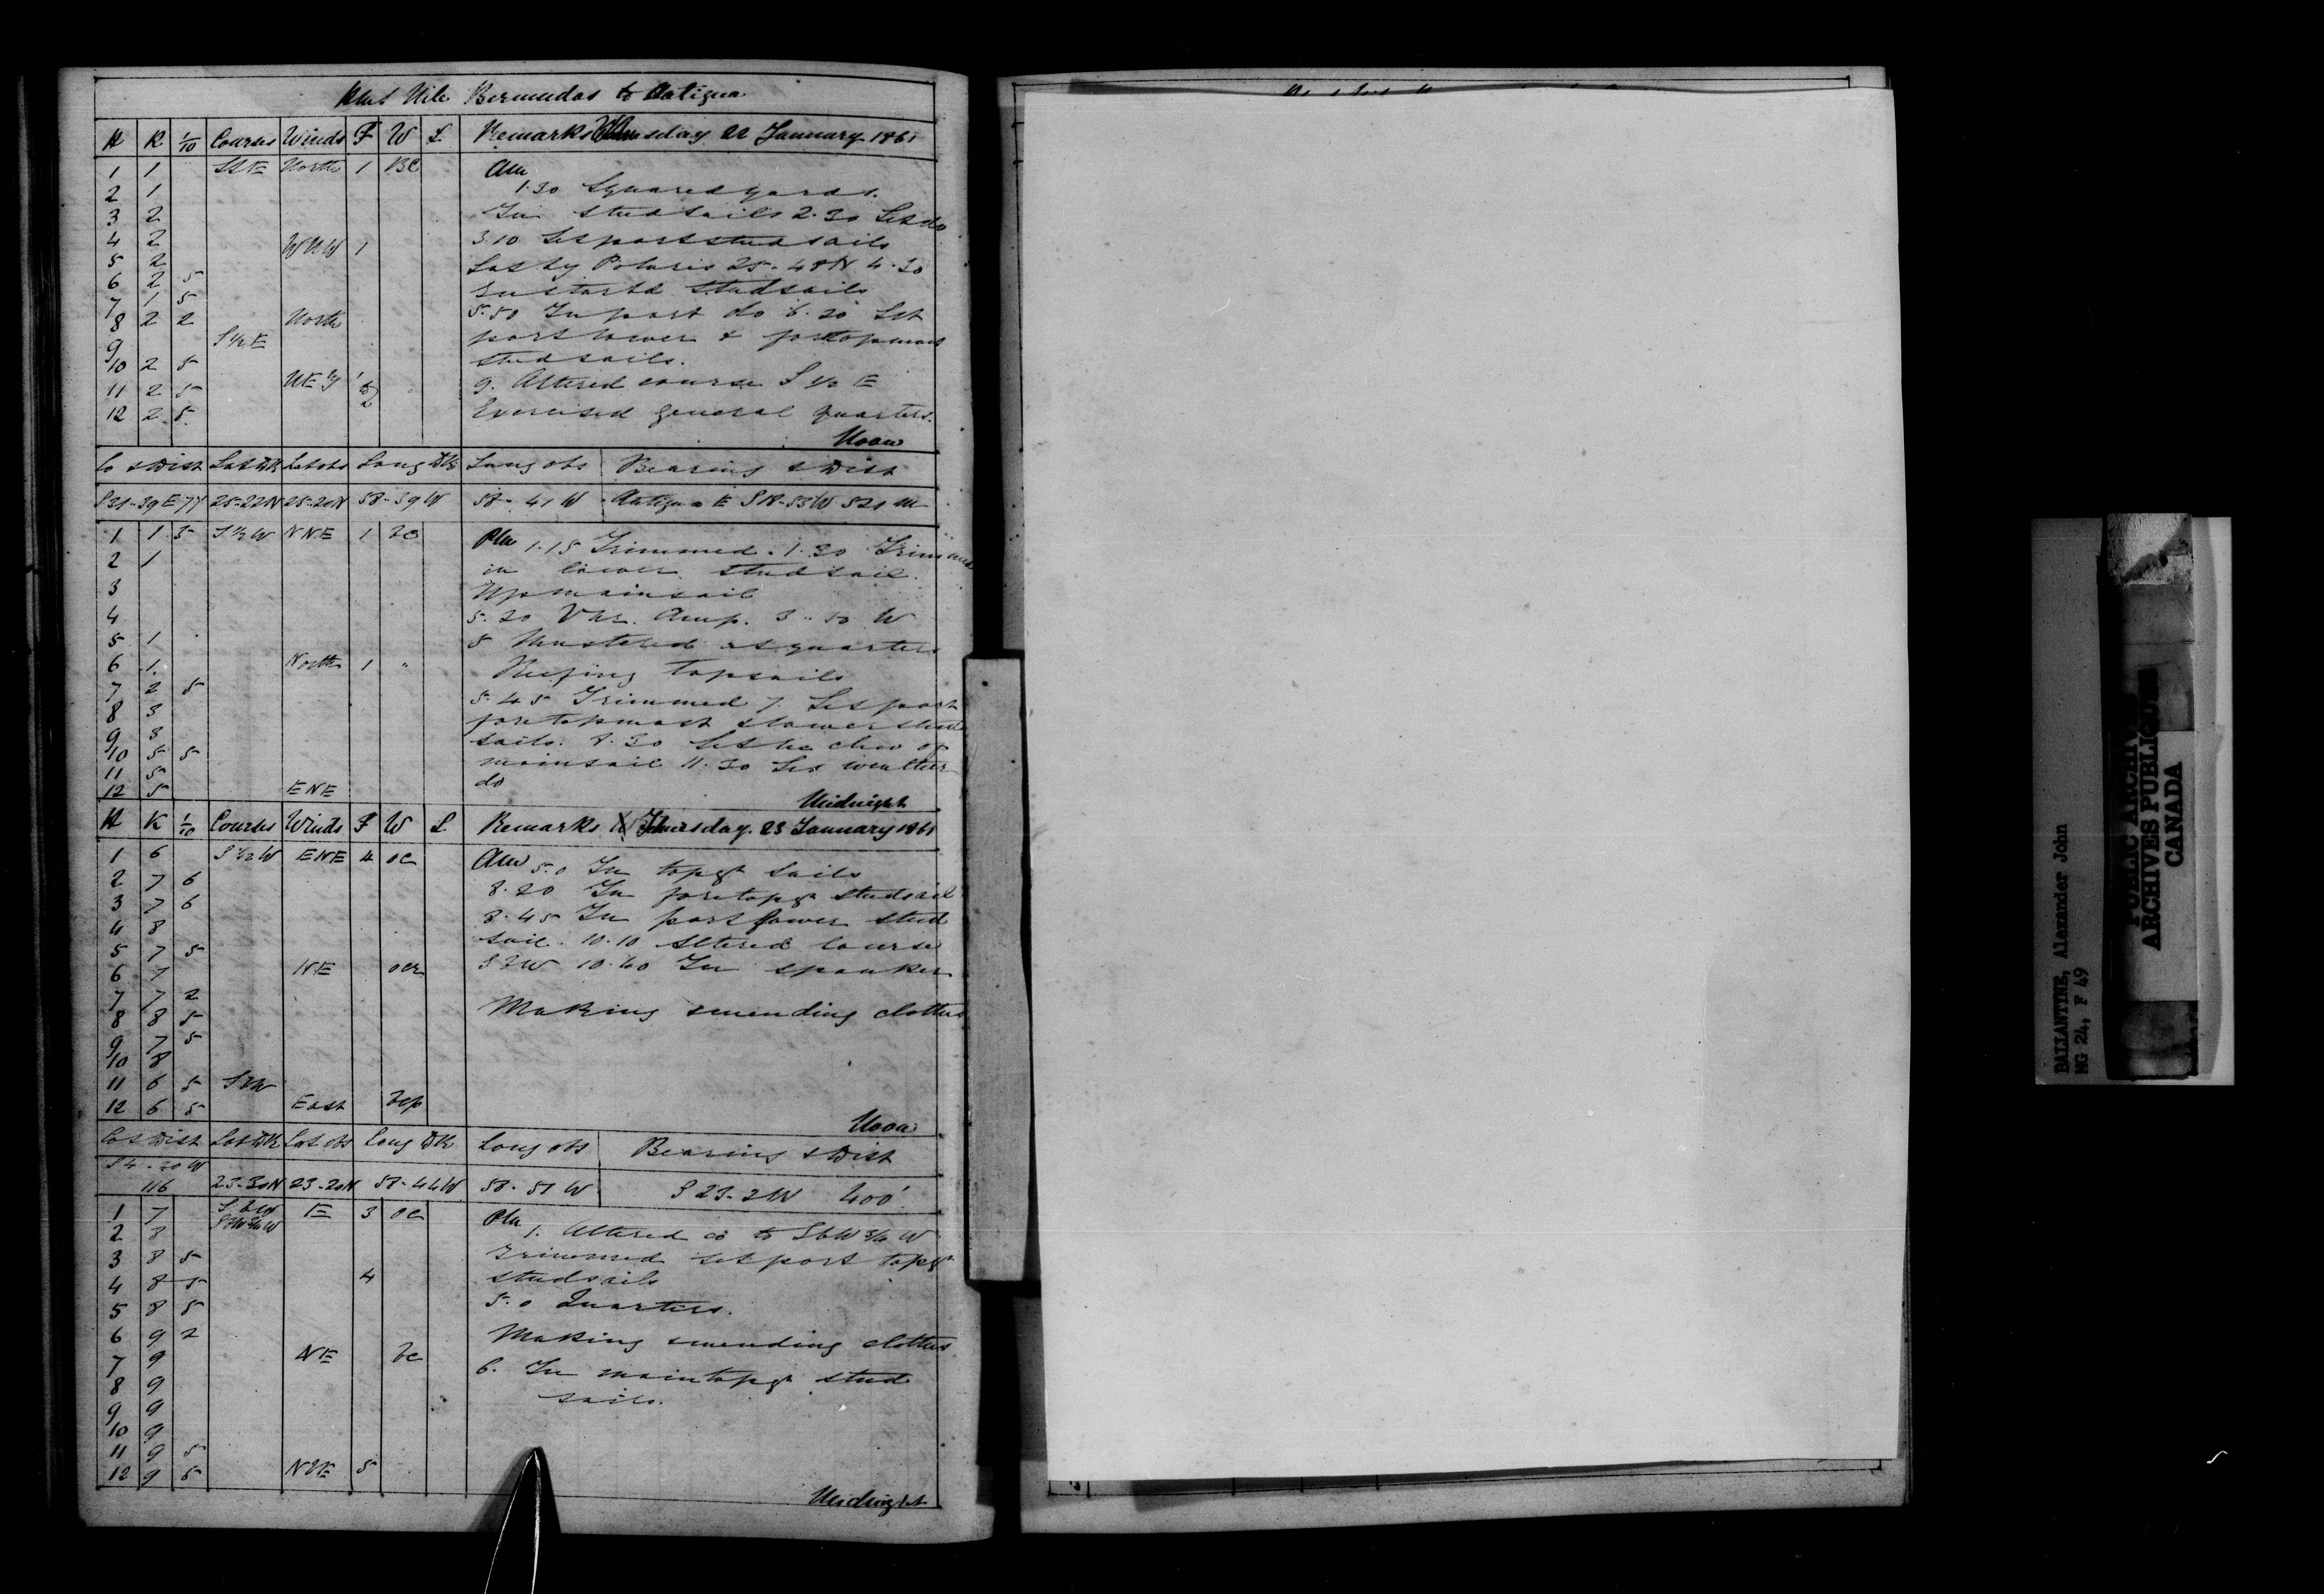 HMS Nile Bermudas to Antigua
H K 1/10 Courses Winds F W L Remarks sday 22 January 1861
1 1 SSE North 1 BC AM
2 1 1.30 Squared yards.
3 2 In studsails 2.30 Set do
4 2 WNW 1 3.10 Set port studsails
5 2 Lat by Polaris 25-48N 4.30
6 2 5 In starbd studsails
7 1 5 5.50 In port do 6.30 Set
8 2 2 North port lower & foretopmast
9 S½E studsails.
10 2 5 9. Altered course S½E
11 2 5 NE by 1 to 2 Exercised general quarters.
12 2 5 Noon
Co & Dist Lat DR Lat obs Long DR Long obs Bearing & Dist
S31-39E 77 25-22N 25-20N 58-39W 58-41W Antigua E S18-53W 521 M
1 1 5 S½W NNE 1 bc PM 1.15 Trimmed. 1.30 Trimmed
2 1 in lower studsail.
3 Up mainsail
4 5.20 Var. Amp. 3-50 W
5 1 5 Mustered at quarters
6 1 North 1 " Reefing topsails
7 2 5 5.45 Trimmed 7. Set port
8 3 foretopmast & lower stud
9 3 sails. 8.30 Set lee clew of
10 5 5 mainsail 11.30 Set weather
11 5 do
12 5 ENE Midnight
H K 1/10 Courses Winds F W L Remarks Thursday 23 January 1861
1 6 S½W ENE 4 oc AM 5.0 In topgt sails
2 7 6 8.20 In foretopgt studsail
3 7 6 8.45 In port lower stud
4 8 sail. 10.10 Altered course
5 7 5 SbW 10.40 In spanker
6 7 NE ocr
7 7 2 Making & mending clothes
8 8 5
9 7 5
10 8
11 6 5 SbW
12 6 5 East bcp Noon
Co & Dist Lat DR Lat obs Long DR Long obs Bearing & Dist
S4-20W
116 23-30N 23-20N 58-44W 58-51W S23-2W 400'
1 7 SbW E 3 oc PM 1. Altered co to SbW¾W
2 8 SbW¾W Trimmed set port topgt
3 8 5 studsails
4 8 5 4
5 8 5 5.0 Quarters.
6 9 2 Making & mending clothes
7 9 NE bc 6. In maintopgt stud
8 9 sails.
9 9
10 9
11 9 5
12 9 5 NbE 5 Midnight
BALLANTINE, Alexander John
MG 24, F 49
PUBLIC ARCHIVES
ARCHIVES PUBLIQUES
CANADA